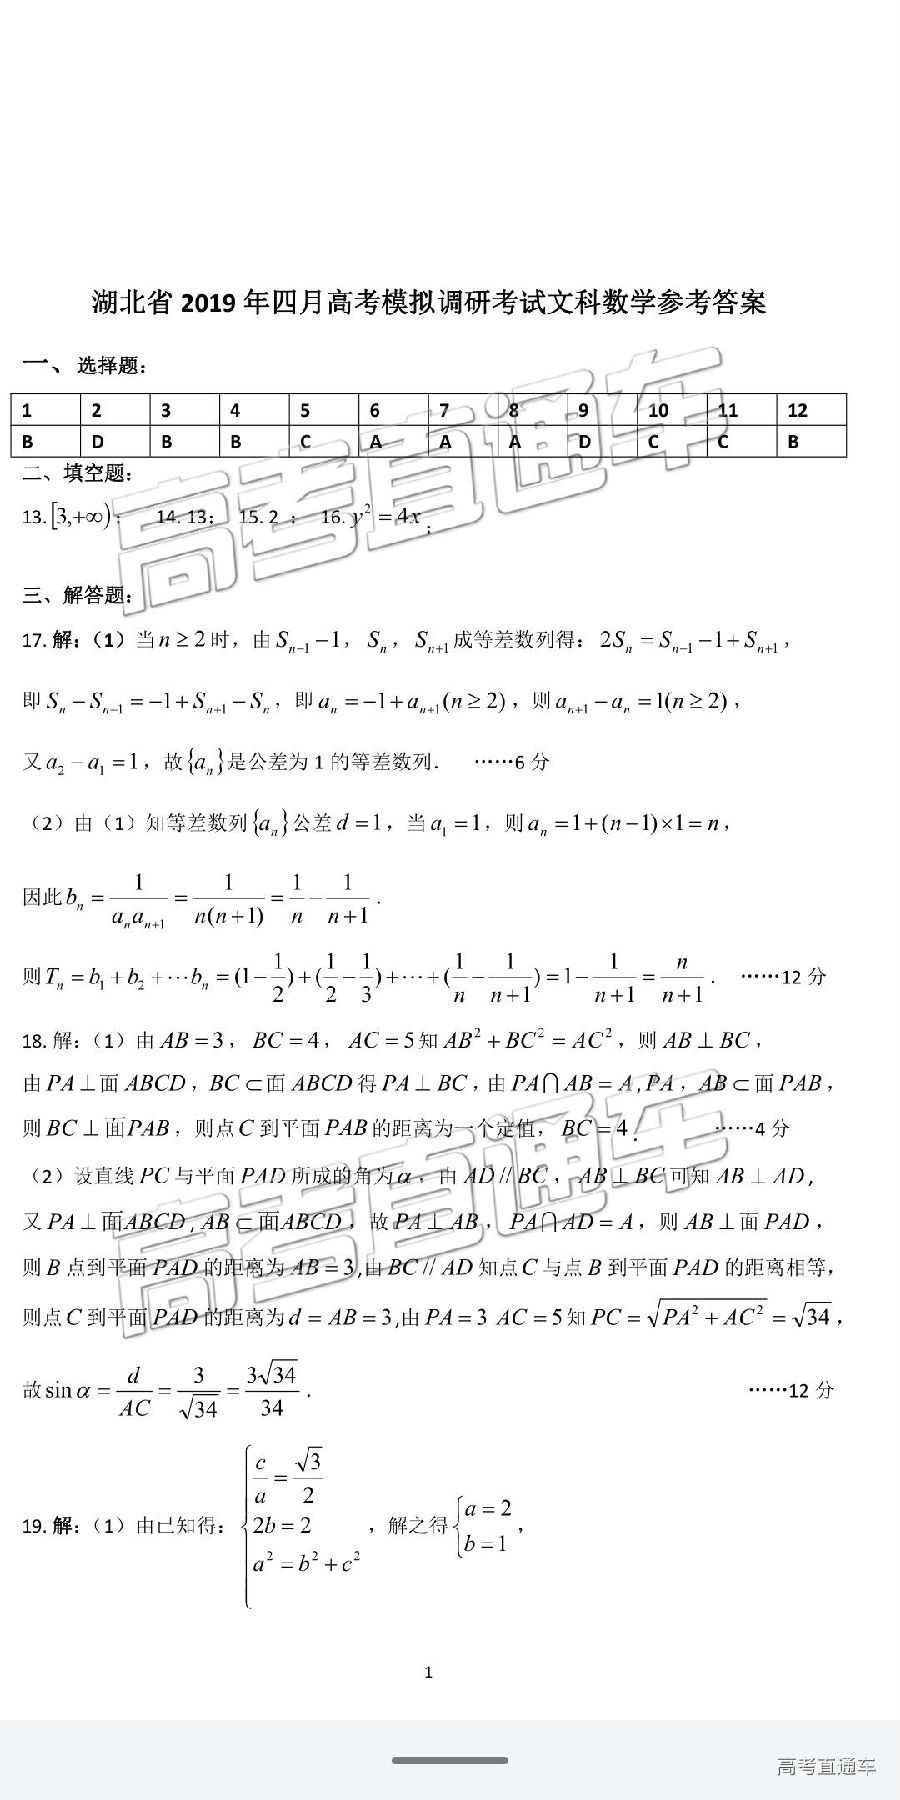 湖北省 2019 年四月高考模拟调研考试文科数学参考答案
一、选择题：
1 2 3 4 5 6 7 8 9 10 11 12
B D B B C A A A D C C B
二、填空题：
13. [3,+∞)； 14. 13； 15. 2 ； 16. y² = 4x ；
三、解答题：
17. 解：（1）当 n ≥ 2 时，由 Sₙ₋₁ −1， Sₙ， Sₙ₊₁ 成等差数列得： 2Sₙ = Sₙ₋₁ −1+ Sₙ₊₁，
即 Sₙ − Sₙ₋₁ = −1+ Sₙ₊₁ − Sₙ，即 aₙ = −1+ aₙ₊₁(n ≥ 2)，则 aₙ₊₁ − aₙ = 1(n ≥ 2)，
又 a₂ − a₁ = 1，故{aₙ}是公差为 1 的等差数列． ……6 分
（2）由（1）知等差数列{aₙ}公差 d = 1，当 a₁ = 1，则 aₙ = 1+(n−1)×1 = n，
因此 bₙ = 1/(aₙaₙ₊₁) = 1/(n(n+1)) = 1/n − 1/(n+1) ．
则 Tₙ = b₁ + b₂ +⋯bₙ = (1− 1/2)+(1/2 − 1/3)+⋯+(1/n − 1/(n+1)) = 1− 1/(n+1) = n/(n+1) ． ……12 分
18. 解：（1）由 AB = 3， BC = 4， AC = 5 知 AB² + BC² = AC²，则 AB ⊥ BC，
由 PA ⊥ 面 ABCD，BC ⊂ 面 ABCD 得 PA ⊥ BC，由 PA⋂AB = A , PA，AB ⊂ 面 PAB，
则 BC ⊥ 面PAB，则点 C 到平面 PAB 的距离为一个定值， BC = 4． ……4 分
（2）设直线 PC 与平面 PAD 所成的角为 α，由 AD // BC ，AB ⊥ BC 可知 AB ⊥ AD，
又 PA ⊥ 面ABCD , AB ⊂ 面ABCD，故 PA ⊥ AB， PA⋂AD = A，则 AB ⊥ 面 PAD，
则 B 点到平面 PAD 的距离为 AB = 3,由 BC // AD 知点 C 与点 B 到平面 PAD 的距离相等，
则点 C 到平面 PAD 的距离为 d = AB = 3,由 PA = 3 AC = 5 知 PC = √(PA² + AC²) = √34，
故 sin α = d/AC = 3/√34 = 3√34/34 ． ……12 分
19. 解：（1）由已知得：{c/a = √3/2, 2b = 2, a² = b² + c²，解之得{a = 2, b = 1，
1
高考直通车
高考直通车
高考直通车